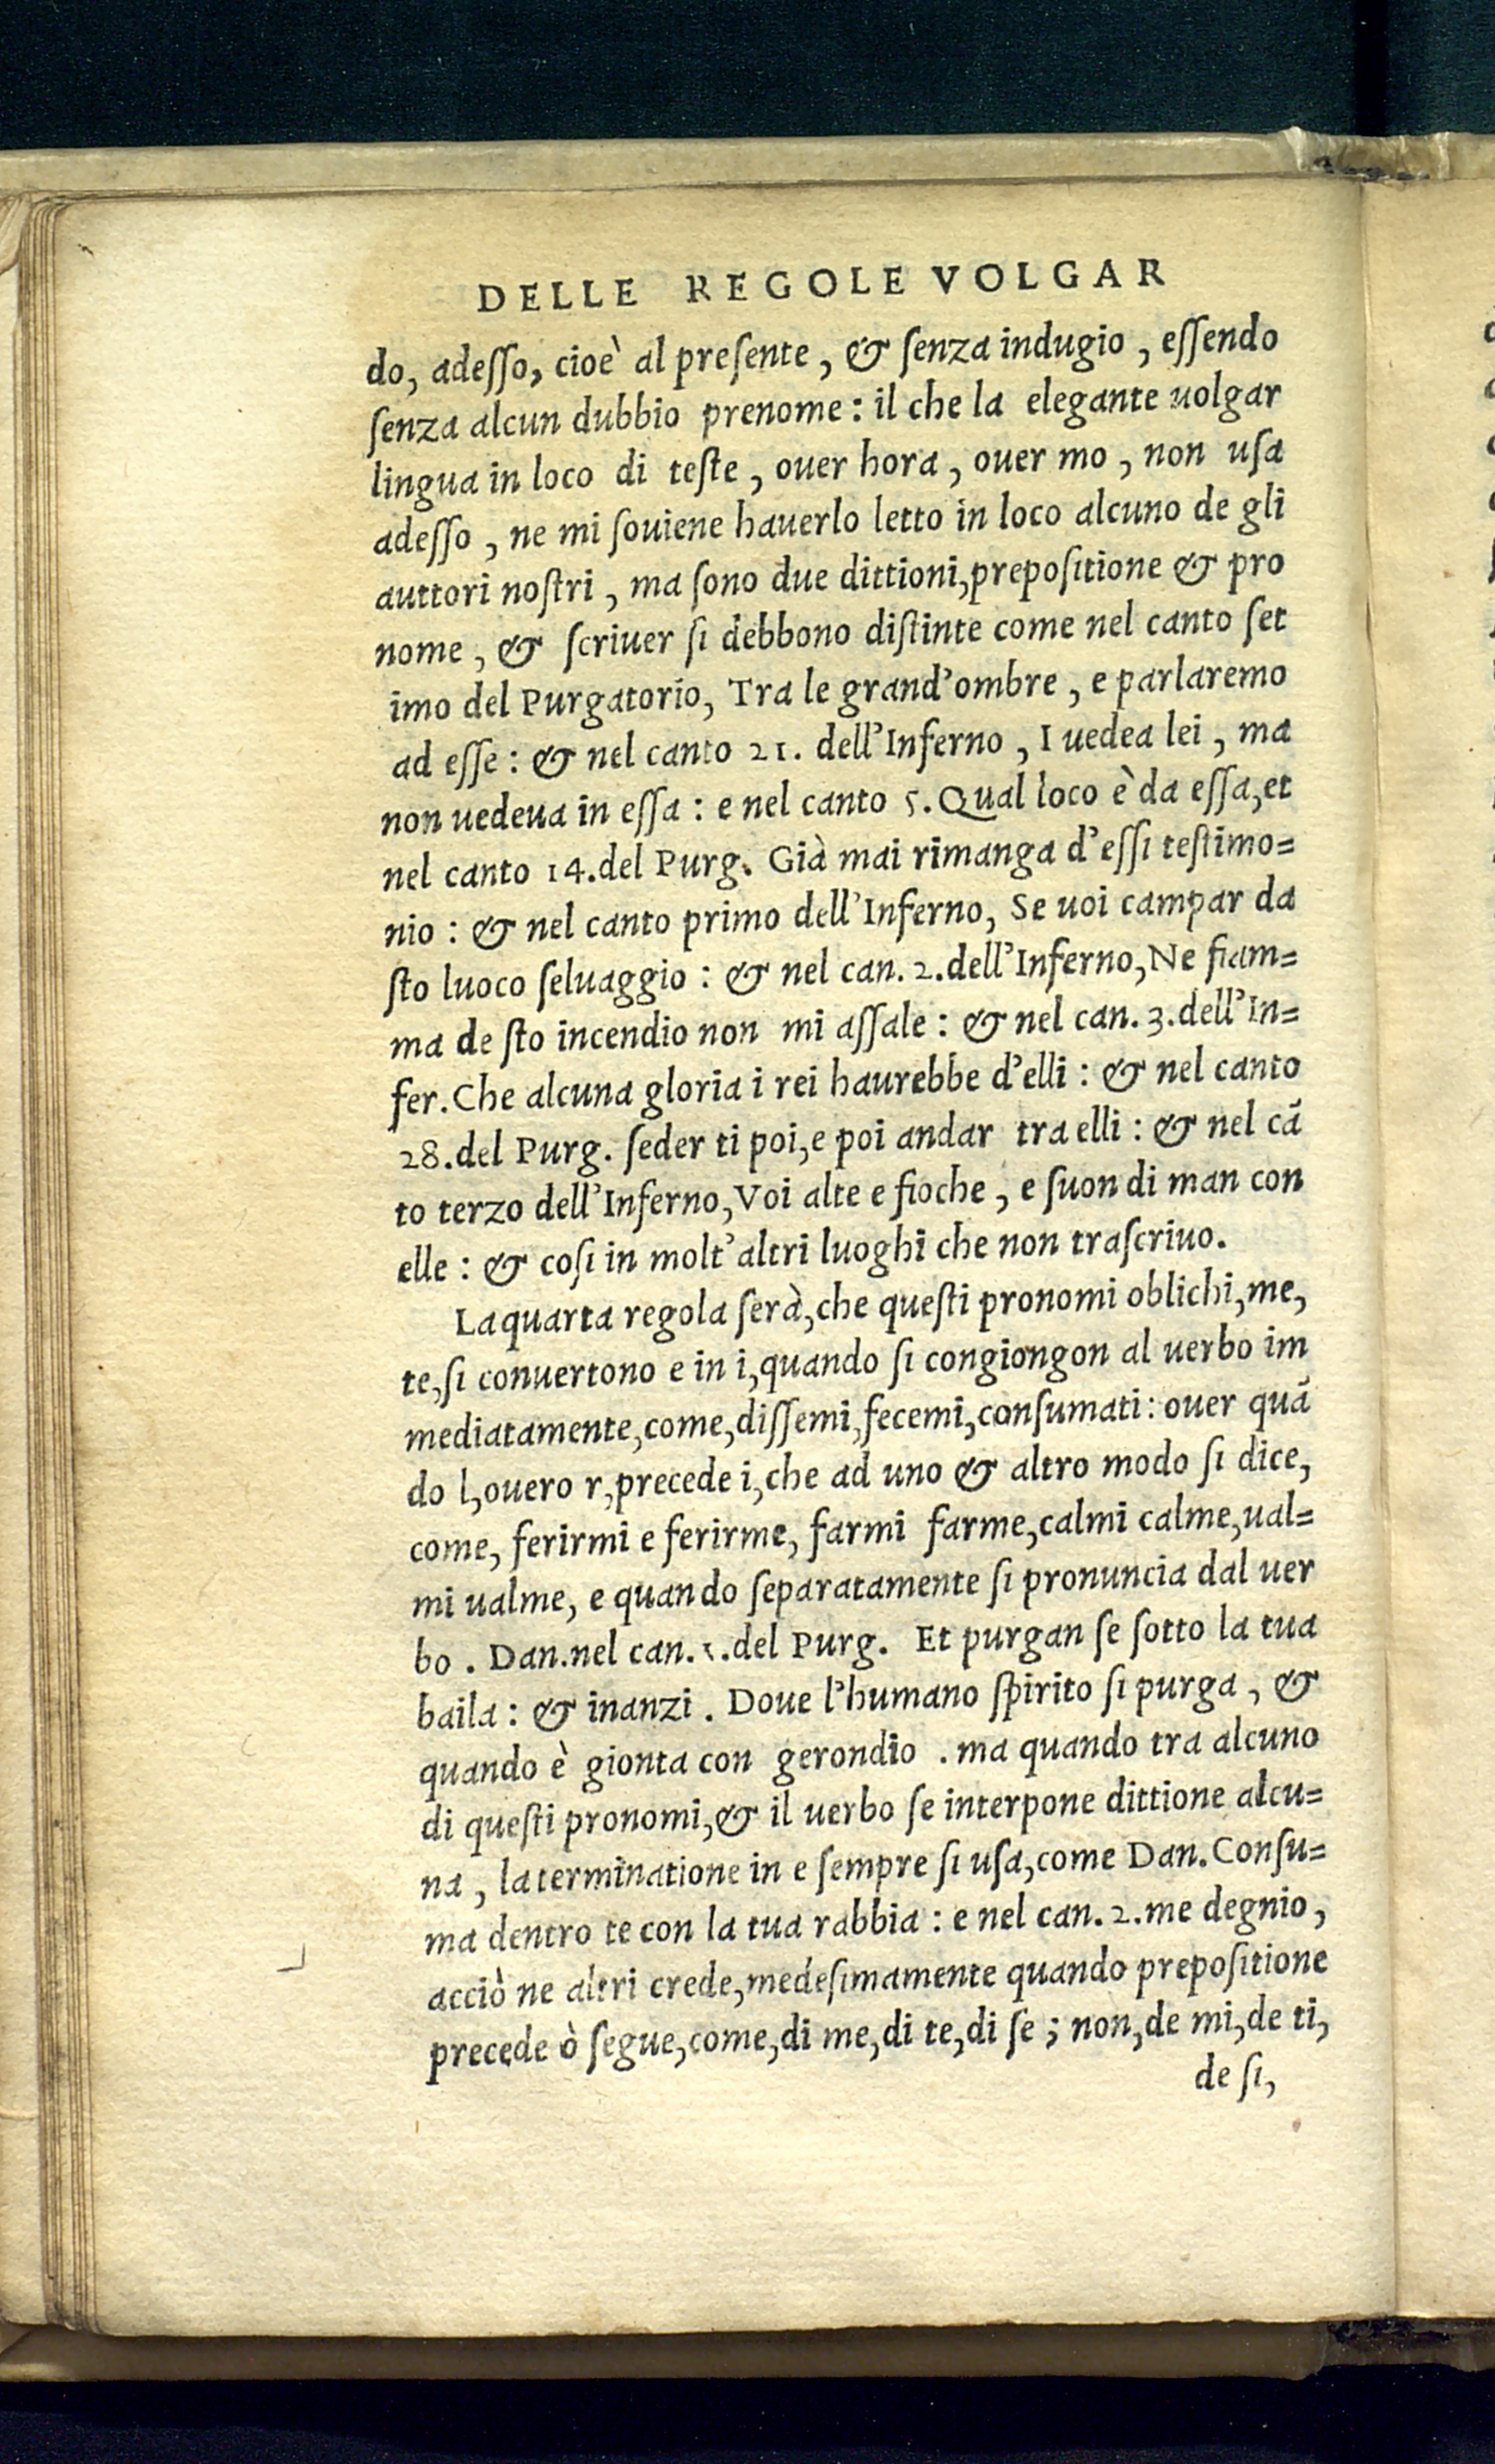 DELLE REGOLE VOLGAR
do, adeſſo, cioè al preſente, & ſenza indugio, eſſendo
ſenza alcun dubbio prenome: il che la elegante uolgar
lingua in loco di teſte, ouer hora, ouer mo, non uſa
adeſſo, ne mi ſouiene hauerlo letto in loco alcuno de gli
auttori noſtri, ma ſono due dittioni, prepoſitione & pro
nome, & ſcriuer ſi debbono diſtinte come nel canto ſet
imo del Purgatorio, Tra le grand'ombre, e parlaremo
ad eſſe: & nel canto 21. dell'Inferno, I uedea lei, ma
non uedeua in eſſa: e nel canto 5. Qual loco è da eſſa, et
nel canto 14. del Purg. Già mai rimanga d'eſſi teſtimo=
nio: & nel canto primo dell'Inferno, Se uoi campar da
ſto luoco ſeluaggio: & nel can. 2. dell'Inferno, Ne fiam=
ma de ſto incendio non mi aſſale: & nel can. 3. dell'In=
fer. Che alcuna gloria i rei haurebbe d'elli: & nel canto
28. del Purg. ſeder ti poi, e poi andar tra elli: & nel cā
to terzo dell'Inferno, Voi alte e fioche, e ſuon di man con
elle: & coſi in molt'altri luoghi che non traſcriuo.
La quarta regola ſerà, che queſti pronomi oblichi, me,
te, ſi conuertono e in i, quando ſi congiongon al uerbo im
mediatamente, come, diſſemi, fecemi, conſumati: ouer quā
do l, ouero r, precede i, che ad uno & altro modo ſi dice,
come, ferirmi e ferirme, farmi farme, calmi calme, ual=
mi ualme, e quando ſeparatamente ſi pronuncia dal uer
bo. Dan. nel can. 1. del Purg. Et purgan ſe ſotto la tua
baila: & inanzi. Doue l'humano ſpirito ſi purga, &
quando è gionta con gerondio. ma quando tra alcuno
di queſti pronomi, & il uerbo ſe interpone dittione alcu=
na, la terminatione in e ſempre ſi uſa, come Dan. Conſu=
ma dentro te con la tua rabbia: e nel can. 2. me degnio,
acciò ne altri crede, medeſimamente quando prepoſitione
precede ò ſegue, come, di me, di te, di ſe; non, de mi, de ti,
de ſi,